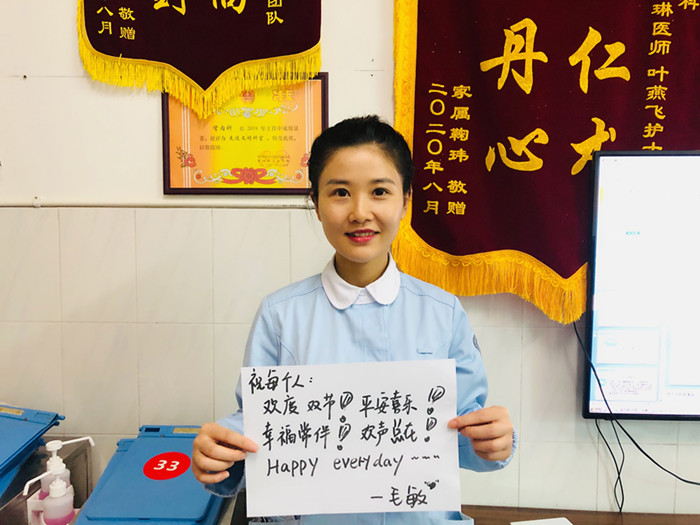 团队
敬赠
八月
琳医师 叶燕飞护士
仁术
丹心
家属鞠玮 敬赠
二〇二〇年八月
33
祝每个人:
欢度双节! 平安喜乐!
幸福常伴! 欢声总在!
Happy everyday ~~~
—毛敏